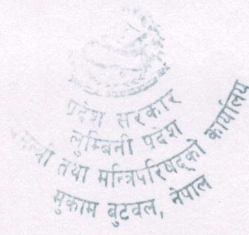 प्रदेश सरकार
लुम्बिनी प्रदेश
तथा मन्त्रिपरिषद्को कार्यालय
मुकाम बुटवल, नेपाल